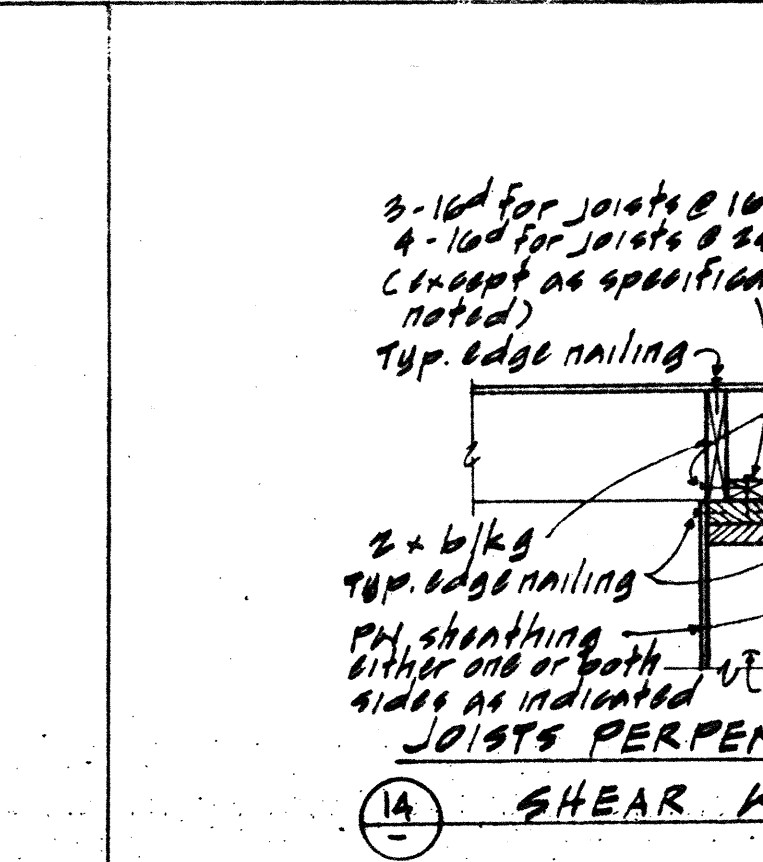 3-16d for joists @ 16
4-16d for joists @ 24
(except as specifica
noted)
Typ. edge nailing
2 x blkg
Typ. edge nailing
PW sheathing
either one or both
sides as indicated
JOISTS PERPEN
14
-
SHEAR W